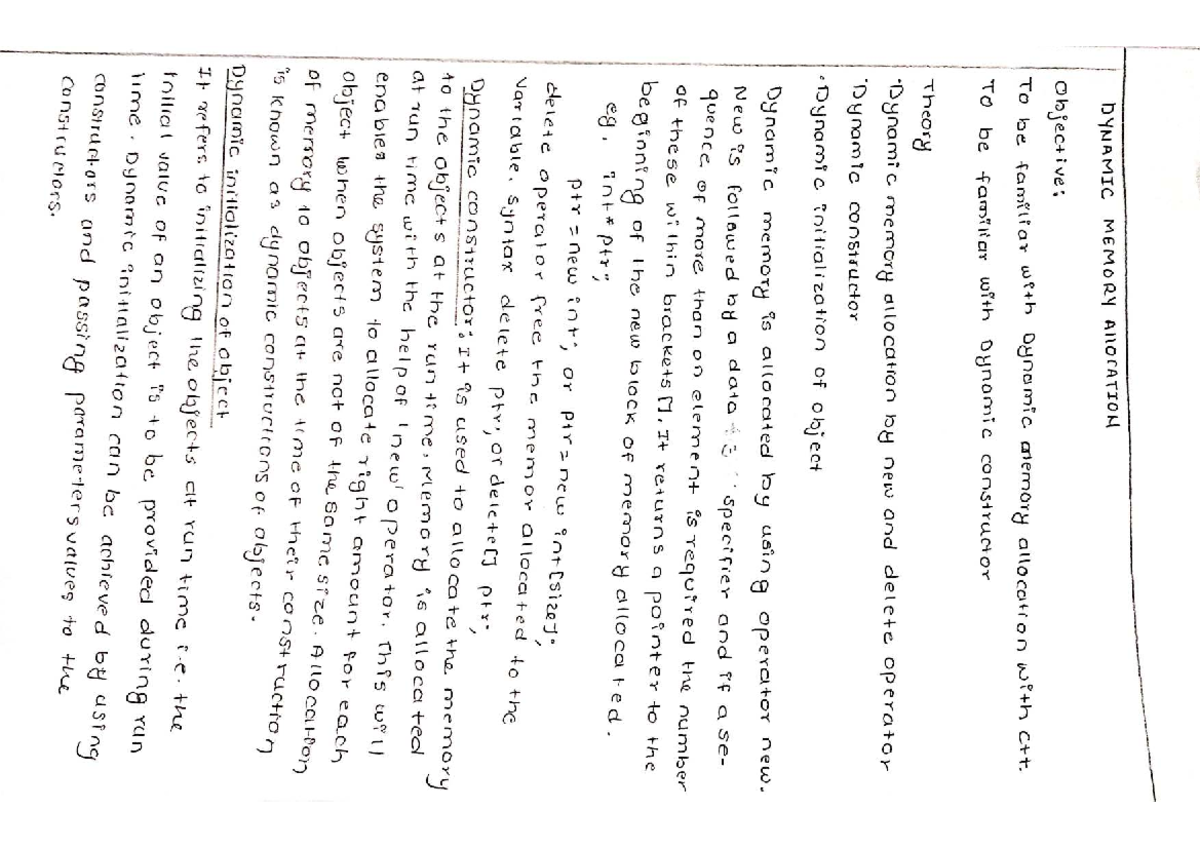 DYNAMIC MEMORY ALLOCATION
Objective:
To be familiar with Dynamic memory allocation with C++.
To be familiar with Dynamic constructor
Theory
·Dynamic memory allocation by new and delete operator
·Dynamic constructor
·Dynamic initialization of object
Dynamic memory is allocated by using operator new.
New is followed by a data specifier and if a se-
quence of more than on element is required the number
of these within brackets []. It returns a pointer to the
beginning of the new block of memory allocated.
eg. int* ptr;
ptr = new int; or ptr = new int[size];
delete operator free the memor allocated to the
variable. Syntax delete ptr; or delete[] ptr;
Dynamic constructor: It is used to allocate the memory
to the objects at the run time. Memory is allocated
at run time with the help of 'new' operator. This will
enables the system to allocate right amount for each
object when objects are not of the same size. Allocation
of memory to objects at the time of their construction
is known as dynamic constructions of objects.
Dynamic initialization of object
It refers to initializing the objects at run time i.e. the
initial value of an object is to be provided during run
time. Dynamic initialization can be achieved by using
constructors and passing parameters values to the
constructors.